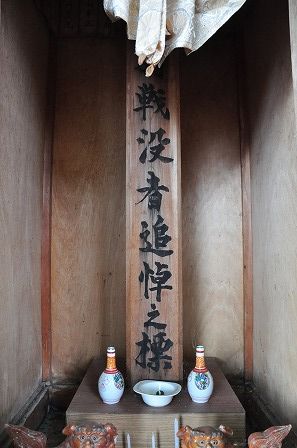 戰没者追悼之標